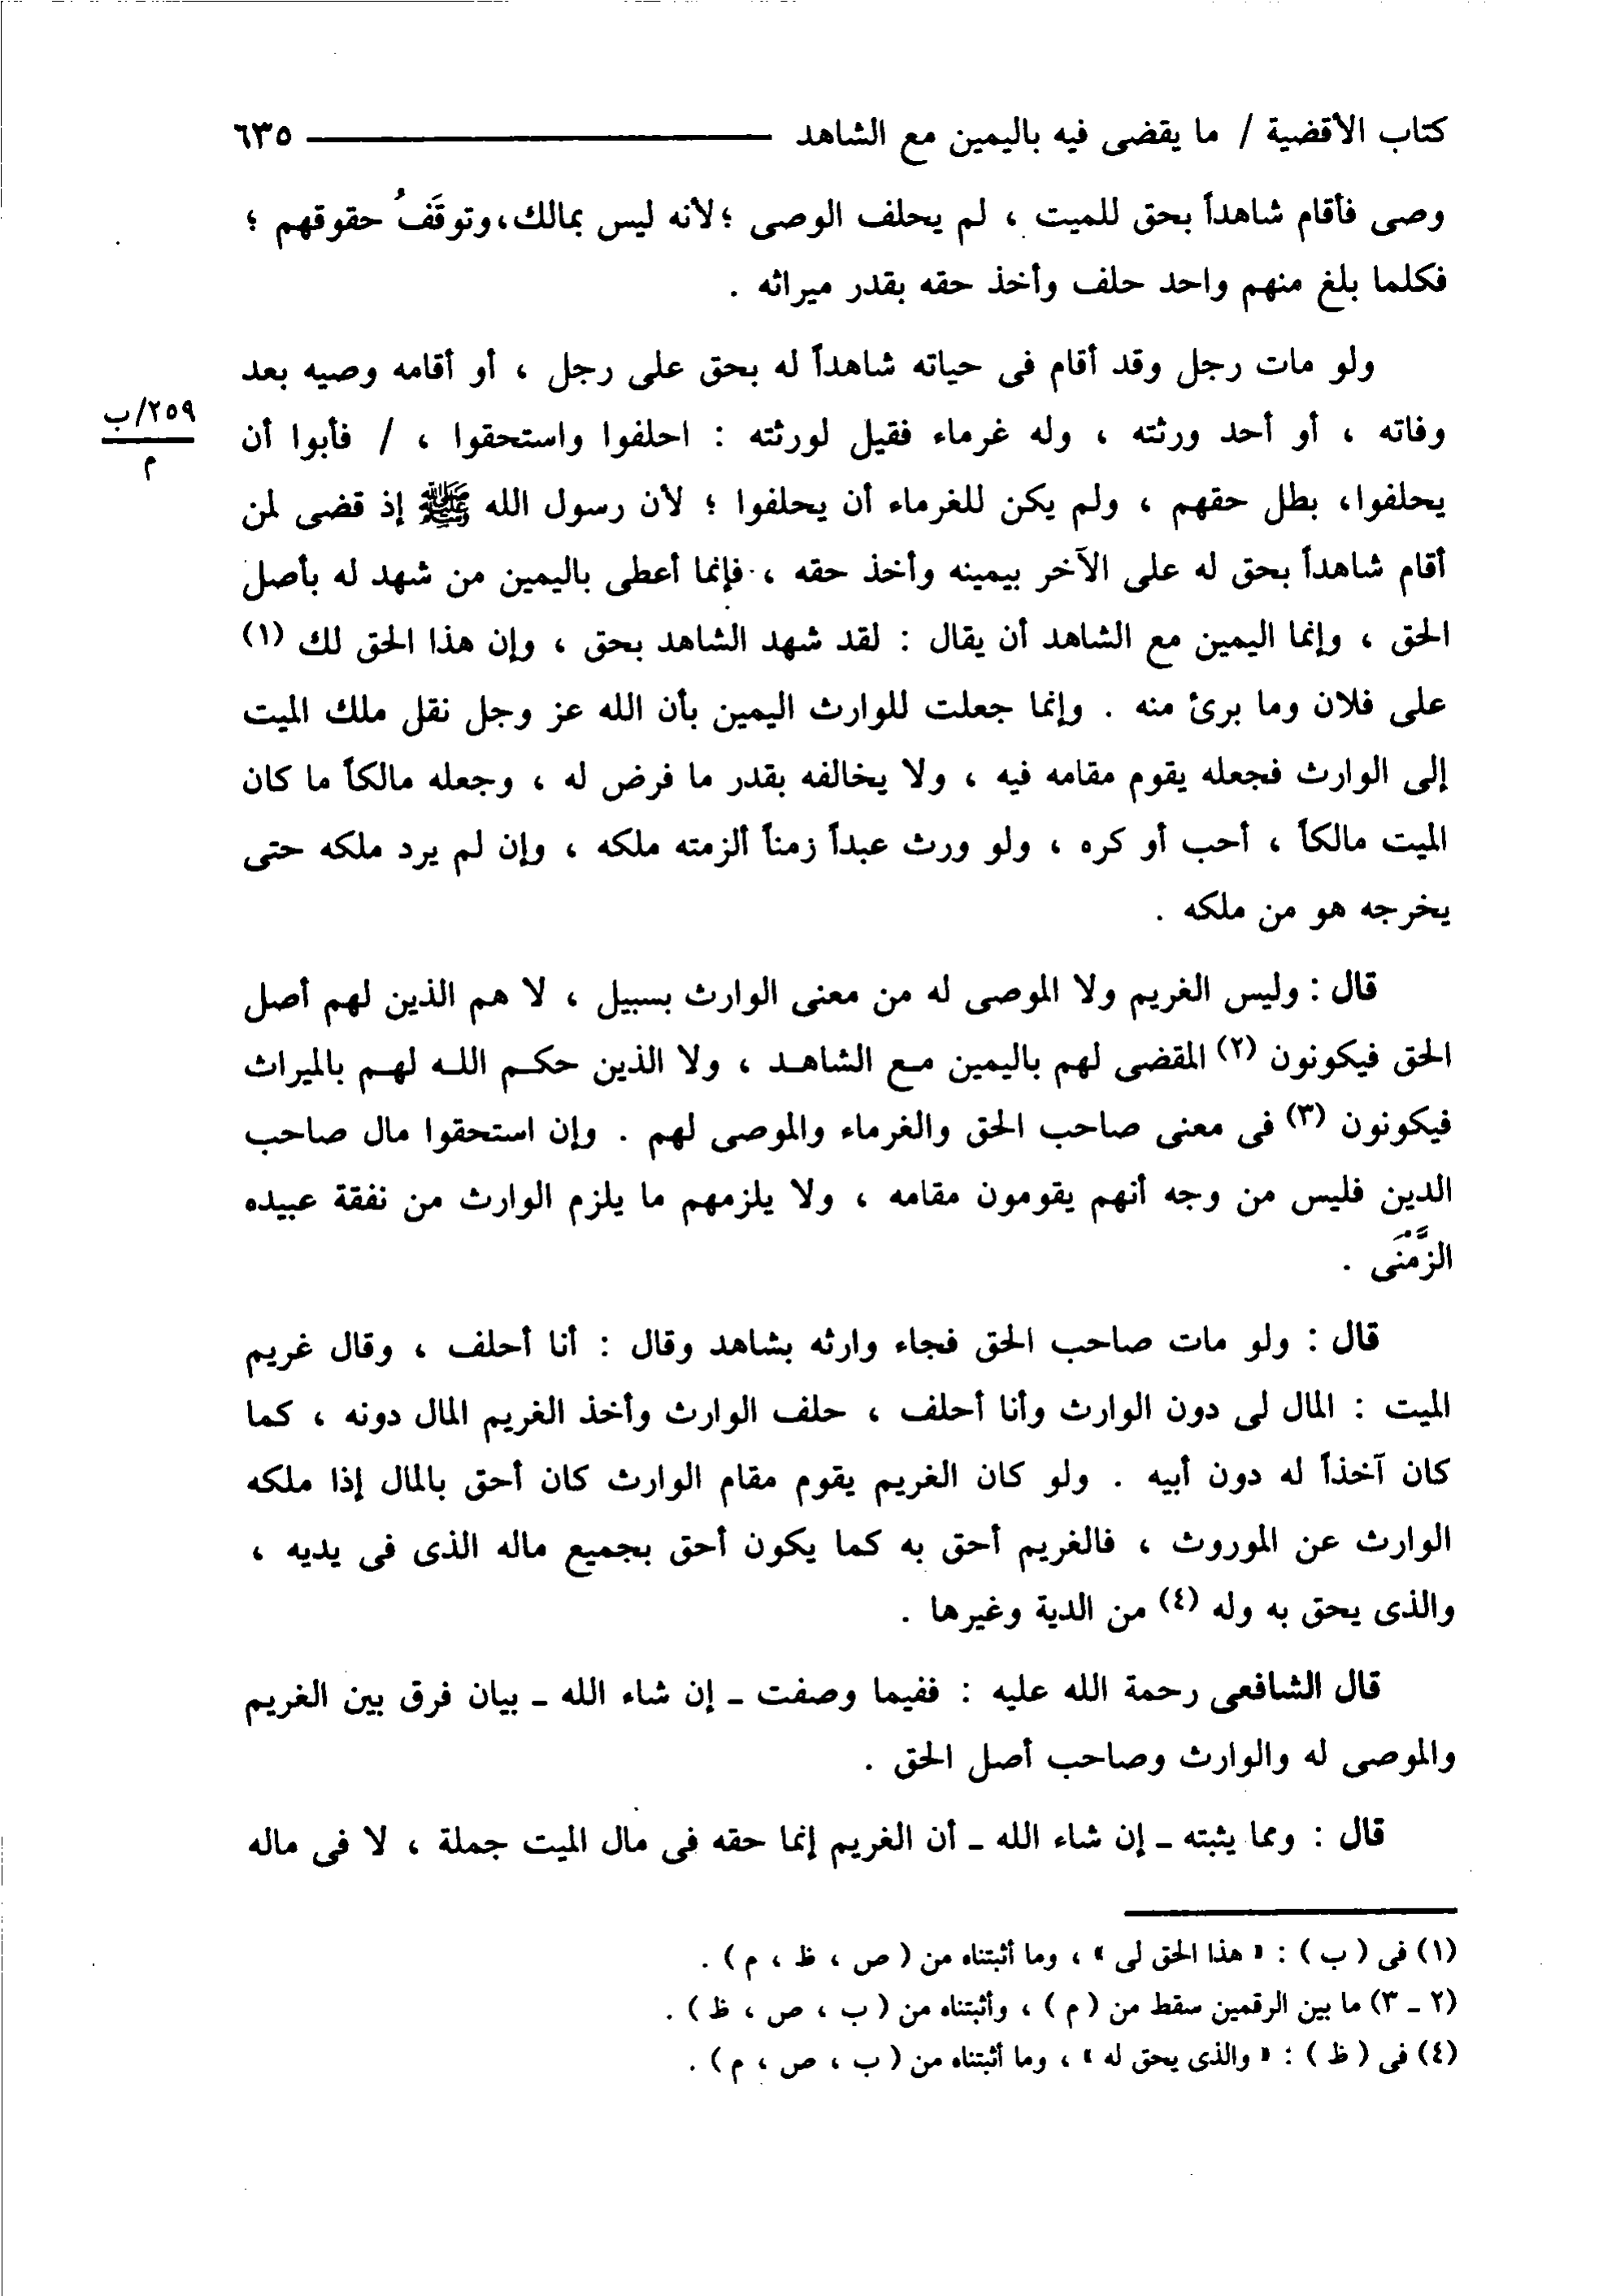 كتاب الأقضية / ما يقضى فيه باليمين مع الشاهد ــــــــــــــــــــ ٦٣٥
وصى فأقام شاهداً بحق للميت ، لم يحلف الوصى ؛ لأنه ليس بمالك، وتوقَفُ حقوقهم ؛
فكلما بلغ منهم واحد حلف وأخذ حقه بقدر ميراثه .
ولو مات رجل وقد أقام فى حياته شاهداً له بحق على رجل ، أو أقامه وصيه بعد
وفاته ، أو أحد ورثته ، وله غرماء فقيل لورثته : احلفوا واستحقوا ، / فأبوا أن
٢٥٩/ب
م
يحلفوا، بطل حقهم ، ولم يكن للغرماء أن يحلفوا ؛ لأن رسول الله ﷺ إذ قضى لمن
أقام شاهداً بحق له على الآخر بيمينه وأخذ حقه ، فإنما أعطى باليمين من شهد له بأصل
الحق ، وإنما اليمين مع الشاهد أن يقال : لقد شهد الشاهد بحق ، وإن هذا الحق لك (١)
على فلان وما برئ منه . وإنما جعلت للوارث اليمين بأن الله عز وجل نقل ملك الميت
إلى الوارث فجعله يقوم مقامه فيه ، ولا يخالفه بقدر ما فرض له ، وجعله مالكاً ما كان
الميت مالكاً ، أحب أو كره ، ولو ورث عبداً زمناً ألزمته ملكه ، وإن لم يرد ملكه حتى
يخرجه هو من ملكه .
قال : وليس الغريم ولا الموصى له من معنى الوارث بسبيل ، لا هم الذين لهم أصل
الحق فيكونون (٢) المقضى لهم باليمين مع الشاهد ، ولا الذين حكم الله لهم بالميراث
فيكونون (٣) فى معنى صاحب الحق والغرماء والموصى لهم . وإن استحقوا مال صاحب
الدين فليس من وجه أنهم يقومون مقامه ، ولا يلزمهم ما يلزم الوارث من نفقة عبيده
الزَّمْنَى .
قال : ولو مات صاحب الحق فجاء وارثه بشاهد وقال : أنا أحلف ، وقال غريم
الميت : المال لى دون الوارث وأنا أحلف ، حلف الوارث وأخذ الغريم المال دونه ، كما
كان آخذاً له دون أبيه . ولو كان الغريم يقوم مقام الوارث كان أحق بالمال إذا ملكه
الوارث عن الموروث ، فالغريم أحق به كما يكون أحق بجميع ماله الذى فى يديه ،
والذى يحق به وله (٤) من الدية وغيرها .
قال الشافعى رحمة الله عليه : ففيما وصفت ـ إن شاء الله ـ بيان فرق بين الغريم
والموصى له والوارث وصاحب أصل الحق .
قال : ومما يثبته ـ إن شاء الله ـ أن الغريم إنما حقه فى مال الميت جملة ، لا فى ماله
(١) فى ( ب ) : « هذا الحق لى » ، وما أثبتناه من ( ص ، ظ ، م ) .
(٢ ـ ٣) ما بين الرقمين سقط من ( م ) ، وأثبتناه من ( ب ، ص ، ظ ) .
(٤) فى ( ظ ) : « والذى يحق له » ، وما أثبتناه من ( ب ، ص ، م ) .